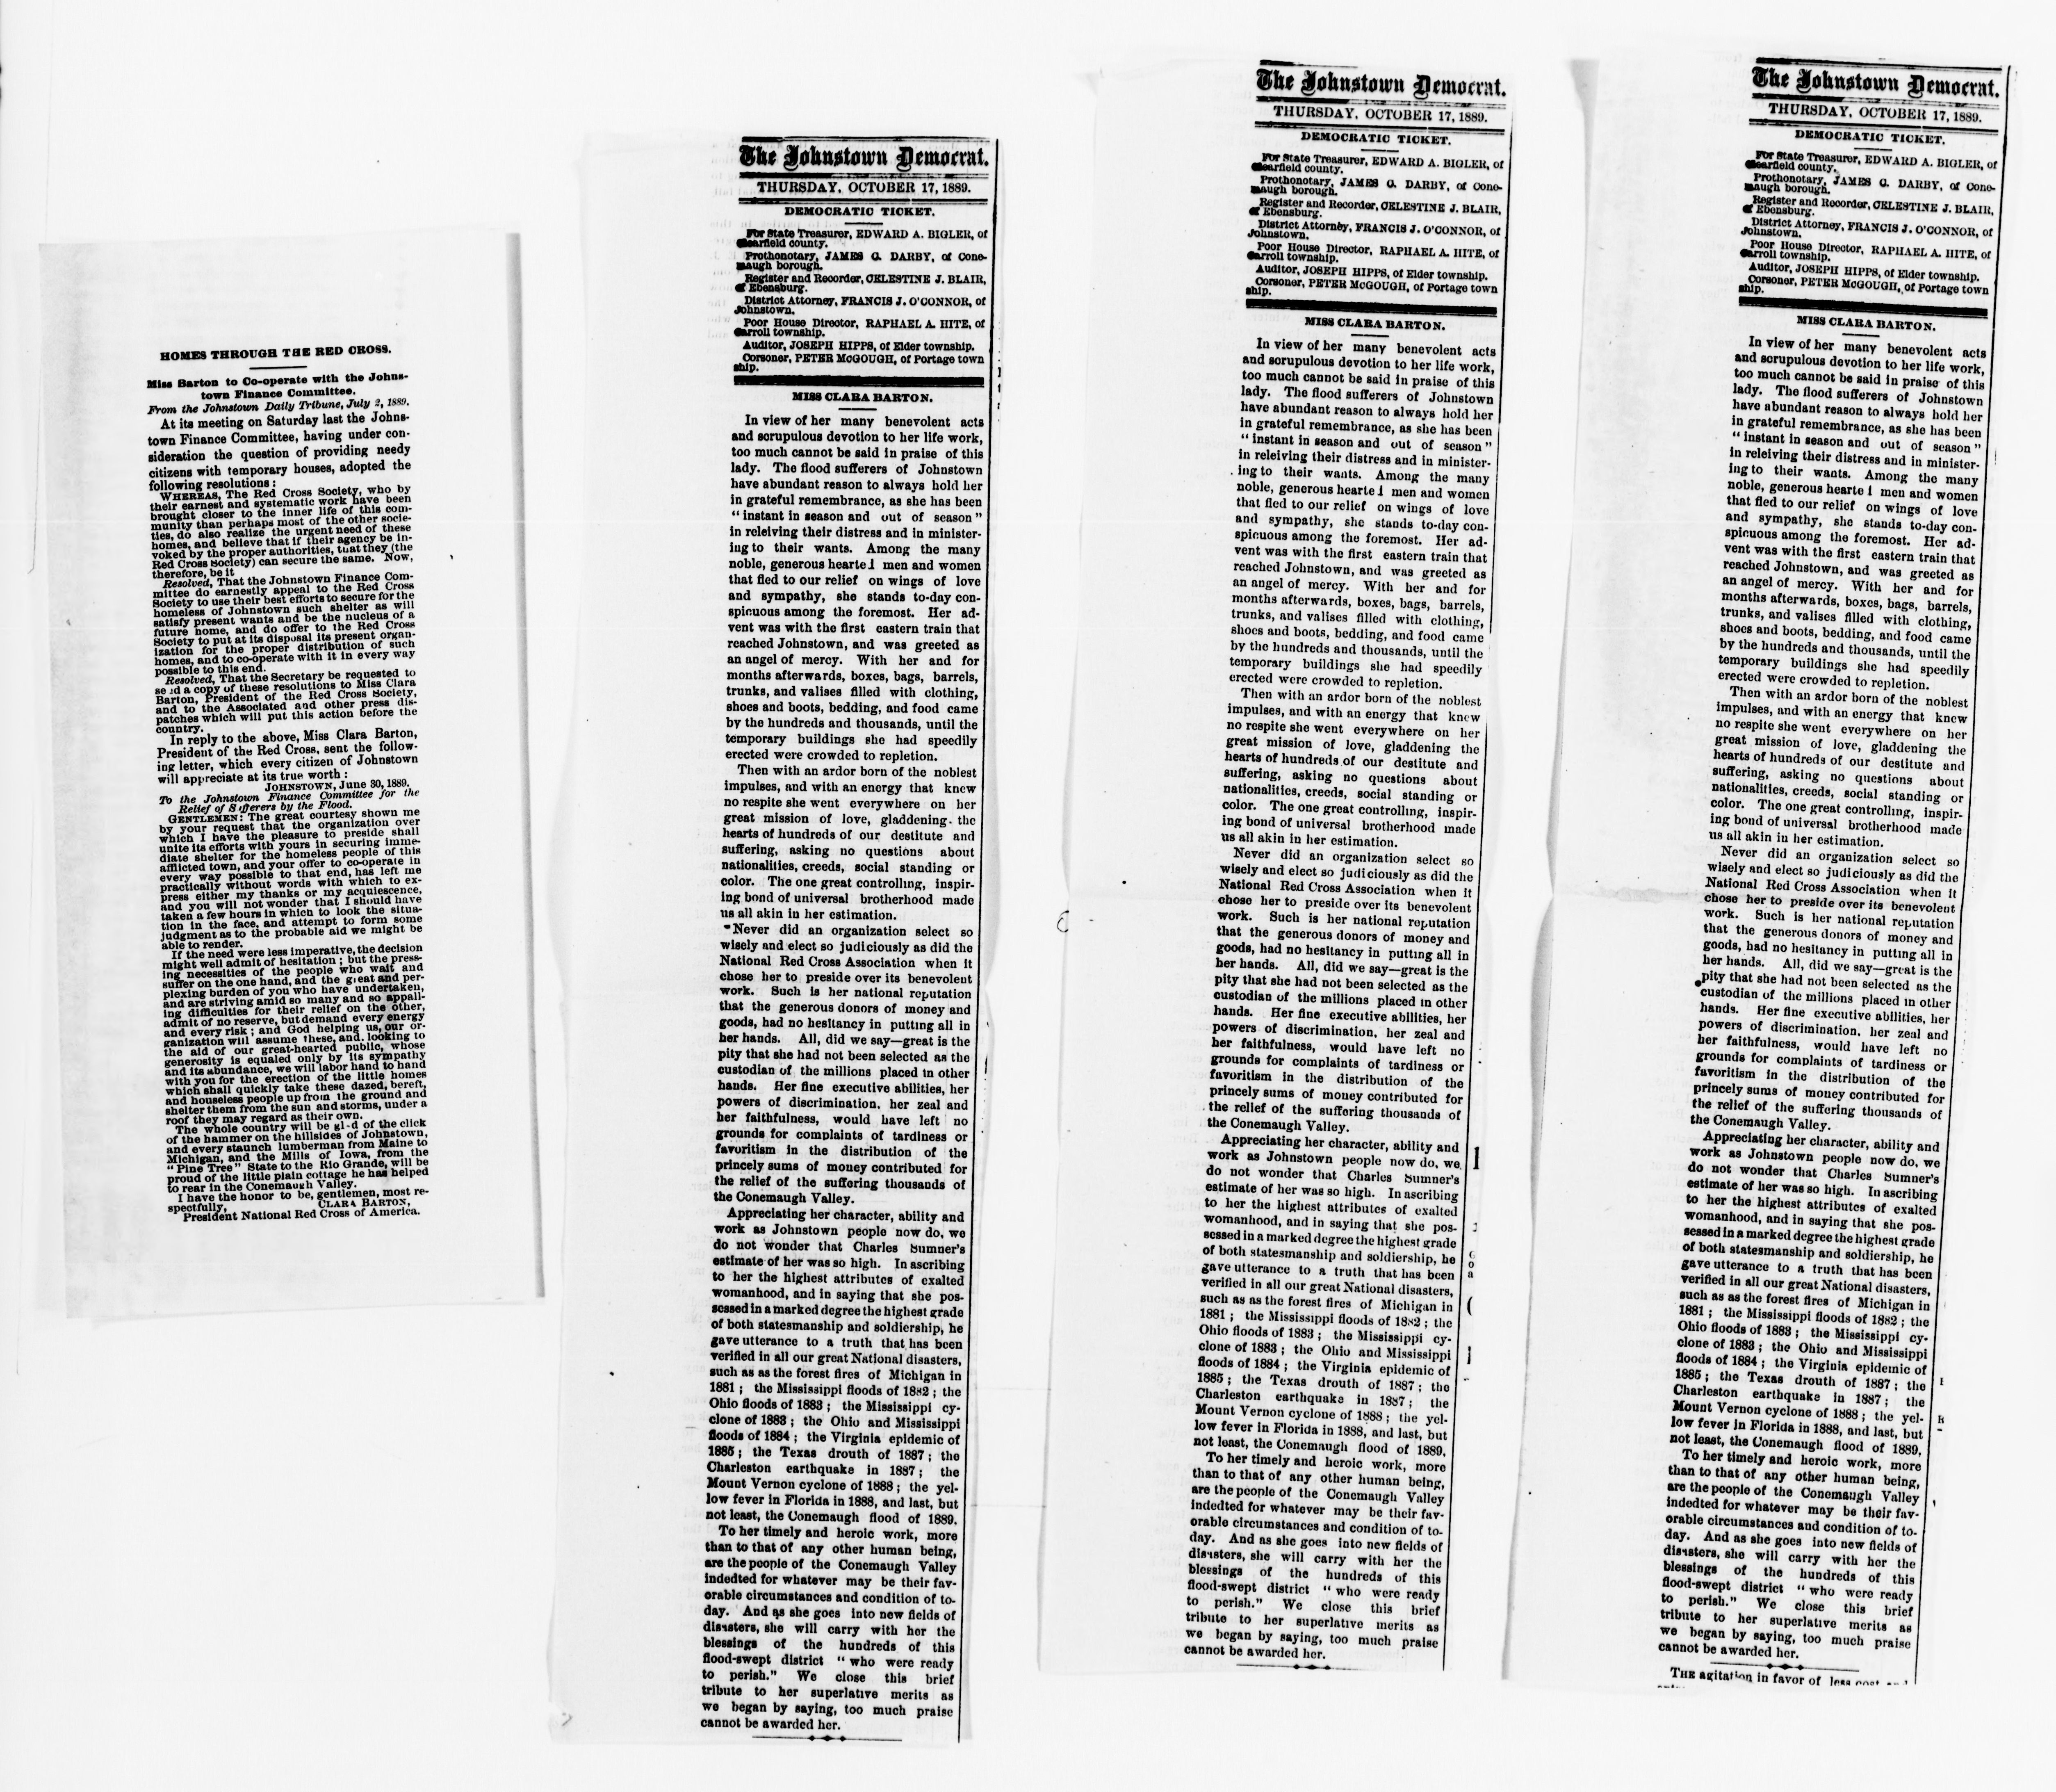 HOMES THROUGH THE RED CROSS.
Miss Barton to Co-operate with the Johns-
town Finance Committee.
From the Johnstown Daily Tribune, July 2, 1889.
At its meeting on Saturday last the Johns-
town Finance Committee, having under con-
sideration the question of providing needy
citizens with temporary houses, adopted the
following resolutions :
WHEREAS, The Red Cross Society, who by
their earnest and systematic work have been
brought closer to the inner life of this com-
munity than perhaps most of the other socie-
ties, do also realize the urgent need of these
homes, and believe that if their agency be in-
voked by the proper authorities, tuat they (the
Red Cross Society) can secure the same. Now,
therefore, be it
Resolved, That the Johnstown Finance Com-
mittee do earnestly appeal to the Red Cross
Society to use their best efforts to secure for the
homeless of Johnstown such shelter as will
satisfy present wants and be the nucleus of a
future home, and do offer to the Red Cross
Society to put at its disposal its present organ-
ization for the proper distribution of such
homes, and to co-operate with it in every way
possible to this end.
Resolved, That the Secretary be requested to
se id a copy of these resolutions to Miss Clara
Barton, President of the Red Cross Society,
and to the Associated and other press dis-
patches which will put this action before the
country.
In reply to the above, Miss Clara Barton,
President of the Red Cross, sent the follow-
ing letter, which every citizen of Johnstown
will appreciate at its true worth :
JOHNSTOWN, June 30, 1889.
To the Johnstown Finance Committee for the
Relief of Sufferers by the Flood.
GENTLEMEN: The great courtesy shown me
by your request that the organization over
which I have the pleasure to preside shall
unite its efforts with yours in securing imme-
diate shelter for the homeless people of this
afflicted town, and your offer to co-operate in
every way possible to that end, has left me
practically without words with which to ex-
press either my thanks or my acquiescence,
and you will not wonder that I should have
taken a few hours in which to look the situa-
tion in the face, and attempt to form some
judgment as to the probable aid we might be
able to render.
If the need were less imperative, the decision
might well admit of hesitation ; but the press-
ing necessities of the people who wait and
suffer on the one hand, and the great and per-
plexing burden of you who have undertaken,
and are striving amid so many and so appall-
ing difficulties for their relief on the other,
admit of no reserve, but demand every energy
and every risk ; and God helping us, our or-
ganization will assume these, and. looking to
the aid of our great-hearted public, whose
generosity is equaled only by its sympathy
and its abundance, we will labor hand to hand
with you for the erection of the little homes
which shall quickly take these dazed, bereft,
and houseless people up from the ground and
shelter them from the sun and storms, under a
roof they may regard as their own.
The whole country will be gl-d of the click
of the hammer on the hillsides of Johnstown,
and every staunch lumberman from Maine to
Michigan, and the Mills of Iowa, from the
"Pine Tree" State to the Rio Grande, will be
proud of the little plain cottage he has helped
to rear in the Conemaugh Valley.
I have the honor to be, gentlemen, most re-
spectfully, CLARA BARTON,
President National Red Cross of America.
The Johnstown Democrat.
THURSDAY, OCTOBER 17, 1889.
DEMOCRATIC TICKET.
For State Treasurer, EDWARD A. BIGLER, of
Clearfield county.
Prothonotary, JAMES G. DARBY, of Cone-
maugh borough.
Register and Recorder, CELESTINE J. BLAIR,
of Ebensburg.
District Attorney, FRANCIS J. O'CONNOR, of
Johnstown.
Poor House Director, RAPHAEL A. HITE, of
Carroll township.
Auditor, JOSEPH HIPPS, of Elder township.
Corsoner, PETER McGOUGH, of Portage town
ship.
MISS CLARA BARTON.
In view of her many benevolent acts
and scrupulous devotion to her life work,
too much cannot be said in praise of this
lady. The flood sufferers of Johnstown
have abundant reason to always hold her
in grateful remembrance, as she has been
" instant in season and out of season "
in releiving their distress and in minister-
ing to their wants. Among the many
noble, generous hearted men and women
that fled to our relief on wings of love
and sympathy, she stands to-day con-
spicuous among the foremost. Her ad-
vent was with the first eastern train that
reached Johnstown, and was greeted as
an angel of mercy. With her and for
months afterwards, boxes, bags, barrels,
trunks, and valises filled with clothing,
shoes and boots, bedding, and food came
by the hundreds and thousands, until the
temporary buildings she had speedily
erected were crowded to repletion.
Then with an ardor born of the noblest
impulses, and with an energy that knew
no respite she went everywhere on her
great mission of love, gladdening the
hearts of hundreds of our destitute and
suffering, asking no questions about
nationalities, creeds, social standing or
color. The one great controlling, inspir-
ing bond of universal brotherhood made
us all akin in her estimation.
Never did an organization select so
wisely and elect so judiciously as did the
National Red Cross Association when it
chose her to preside over its benevolent
work. Such is her national reputation
that the generous donors of money and
goods, had no hesitancy in putting all in
her hands. All, did we say—great is the
pity that she had not been selected as the
custodian of the millions placed in other
hands. Her fine executive abilities, her
powers of discrimination, her zeal and
her faithfulness, would have left no
grounds for complaints of tardiness or
favoritism in the distribution of the
princely sums of money contributed for
the relief of the suffering thousands of
the Conemaugh Valley.
Appreciating her character, ability and
work as Johnstown people now do, we
do not wonder that Charles Sumner's
estimate of her was so high. In ascribing
to her the highest attributes of exalted
womanhood, and in saying that she pos-
sessed in a marked degree the highest grade
of both statesmanship and soldiership, he
gave utterance to a truth that has been
verified in all our great National disasters,
such as as the forest fires of Michigan in
1881 ; the Mississippi floods of 1882 ; the
Ohio floods of 1883 ; the Mississippi cy-
clone of 1883 ; the Ohio and Mississippi
floods of 1884 ; the Virginia epidemic of
1885 ; the Texas drouth of 1887 ; the
Charleston earthquake in 1887 ; the
Mount Vernon cyclone of 1888 ; the yel-
low fever in Florida in 1888, and last, but
not least, the Conemaugh flood of 1889.
To her timely and heroic work, more
than to that of any other human being,
are the people of the Conemaugh Valley
indedted for whatever may be their fav-
orable circumstances and condition of to-
day. And as she goes into new fields of
disasters, she will carry with her the
blessings of the hundreds of this
flood-swept district " who were ready
to perish." We close this brief
tribute to her superlative merits as
we began by saying, too much praise
cannot be awarded her.
The Johnstown Democrat.
THURSDAY, OCTOBER 17, 1889.
DEMOCRATIC TICKET.
For State Treasurer, EDWARD A. BIGLER, of
Clearfield county.
Prothonotary, JAMES G. DARBY, of Cone-
maugh borough.
Register and Recorder, CELESTINE J. BLAIR,
of Ebensburg.
District Attorney, FRANCIS J. O'CONNOR, of
Johnstown.
Poor House Director, RAPHAEL A. HITE, of
Carroll township.
Auditor, JOSEPH HIPPS, of Elder township.
Corsoner, PETER McGOUGH, of Portage town
ship.
MISS CLARA BARTON.
In view of her many benevolent acts
and scrupulous devotion to her life work,
too much cannot be said in praise of this
lady. The flood sufferers of Johnstown
have abundant reason to always hold her
in grateful remembrance, as she has been
" instant in season and out of season "
in releiving their distress and in minister-
ing to their wants. Among the many
noble, generous hearted men and women
that fled to our relief on wings of love
and sympathy, she stands to-day con-
spicuous among the foremost. Her ad-
vent was with the first eastern train that
reached Johnstown, and was greeted as
an angel of mercy. With her and for
months afterwards, boxes, bags, barrels,
trunks, and valises filled with clothing,
shoes and boots, bedding, and food came
by the hundreds and thousands, until the
temporary buildings she had speedily
erected were crowded to repletion.
Then with an ardor born of the noblest
impulses, and with an energy that knew
no respite she went everywhere on her
great mission of love, gladdening the
hearts of hundreds of our destitute and
suffering, asking no questions about
nationalities, creeds, social standing or
color. The one great controlling, inspir-
ing bond of universal brotherhood made
us all akin in her estimation.
Never did an organization select so
wisely and elect so judiciously as did the
National Red Cross Association when it
chose her to preside over its benevolent
work. Such is her national reputation
that the generous donors of money and
goods, had no hesitancy in putting all in
her hands. All, did we say—great is the
pity that she had not been selected as the
custodian of the millions placed in other
hands. Her fine executive abilities, her
powers of discrimination, her zeal and
her faithfulness, would have left no
grounds for complaints of tardiness or
favoritism in the distribution of the
princely sums of money contributed for
the relief of the suffering thousands of
the Conemaugh Valley.
Appreciating her character, ability and
work as Johnstown people now do, we
do not wonder that Charles Sumner's
estimate of her was so high. In ascribing
to her the highest attributes of exalted
womanhood, and in saying that she pos-
sessed in a marked degree the highest grade
of both statesmanship and soldiership, he
gave utterance to a truth that has been
verified in all our great National disasters,
such as as the forest fires of Michigan in
1881 ; the Mississippi floods of 1882 ; the
Ohio floods of 1883 ; the Mississippi cy-
clone of 1883 ; the Ohio and Mississippi
floods of 1884 ; the Virginia epidemic of
1885 ; the Texas drouth of 1887 ; the
Charleston earthquake in 1887 ; the
Mount Vernon cyclone of 1888 ; the yel-
low fever in Florida in 1888, and last, but
not least, the Conemaugh flood of 1889.
To her timely and heroic work, more
than to that of any other human being,
are the people of the Conemaugh Valley
indedted for whatever may be their fav-
orable circumstances and condition of to-
day. And as she goes into new fields of
disasters, she will carry with her the
blessings of the hundreds of this
flood-swept district " who were ready
to perish." We close this brief
tribute to her superlative merits as
we began by saying, too much praise
cannot be awarded her.
The Johnstown Democrat.
THURSDAY, OCTOBER 17, 1889.
DEMOCRATIC TICKET.
For State Treasurer, EDWARD A. BIGLER, of
Clearfield county.
Prothonotary, JAMES G. DARBY, of Cone-
maugh borough.
Register and Recorder, CELESTINE J. BLAIR,
of Ebensburg.
District Attorney, FRANCIS J. O'CONNOR, of
Johnstown.
Poor House Director, RAPHAEL A. HITE, of
Carroll township.
Auditor, JOSEPH HIPPS, of Elder township.
Corsoner, PETER McGOUGH, of Portage town
ship.
MISS CLARA BARTON.
In view of her many benevolent acts
and scrupulous devotion to her life work,
too much cannot be said in praise of this
lady. The flood sufferers of Johnstown
have abundant reason to always hold her
in grateful remembrance, as she has been
" instant in season and out of season "
in releiving their distress and in minister-
ing to their wants. Among the many
noble, generous hearted men and women
that fled to our relief on wings of love
and sympathy, she stands to-day con-
spicuous among the foremost. Her ad-
vent was with the first eastern train that
reached Johnstown, and was greeted as
an angel of mercy. With her and for
months afterwards, boxes, bags, barrels,
trunks, and valises filled with clothing,
shoes and boots, bedding, and food came
by the hundreds and thousands, until the
temporary buildings she had speedily
erected were crowded to repletion.
Then with an ardor born of the noblest
impulses, and with an energy that knew
no respite she went everywhere on her
great mission of love, gladdening the
hearts of hundreds of our destitute and
suffering, asking no questions about
nationalities, creeds, social standing or
color. The one great controlling, inspir-
ing bond of universal brotherhood made
us all akin in her estimation.
Never did an organization select so
wisely and elect so judiciously as did the
National Red Cross Association when it
chose her to preside over its benevolent
work. Such is her national reputation
that the generous donors of money and
goods, had no hesitancy in putting all in
her hands. All, did we say—great is the
pity that she had not been selected as the
custodian of the millions placed in other
hands. Her fine executive abilities, her
powers of discrimination, her zeal and
her faithfulness, would have left no
grounds for complaints of tardiness or
favoritism in the distribution of the
princely sums of money contributed for
the relief of the suffering thousands of
the Conemaugh Valley.
Appreciating her character, ability and
work as Johnstown people now do, we
do not wonder that Charles Sumner's
estimate of her was so high. In ascribing
to her the highest attributes of exalted
womanhood, and in saying that she pos-
sessed in a marked degree the highest grade
of both statesmanship and soldiership, he
gave utterance to a truth that has been
verified in all our great National disasters,
such as as the forest fires of Michigan in
1881 ; the Mississippi floods of 1882 ; the
Ohio floods of 1883 ; the Mississippi cy-
clone of 1883 ; the Ohio and Mississippi
floods of 1884 ; the Virginia epidemic of
1885 ; the Texas drouth of 1887 ; the
Charleston earthquake in 1887 ; the
Mount Vernon cyclone of 1888 ; the yel-
low fever in Florida in 1888, and last, but
not least, the Conemaugh flood of 1889.
To her timely and heroic work, more
than to that of any other human being,
are the people of the Conemaugh Valley
indedted for whatever may be their fav-
orable circumstances and condition of to-
day. And as she goes into new fields of
disasters, she will carry with her the
blessings of the hundreds of this
flood-swept district " who were ready
to perish." We close this brief
tribute to her superlative merits as
we began by saying, too much praise
cannot be awarded her.
THE agitation in favor of less cost and